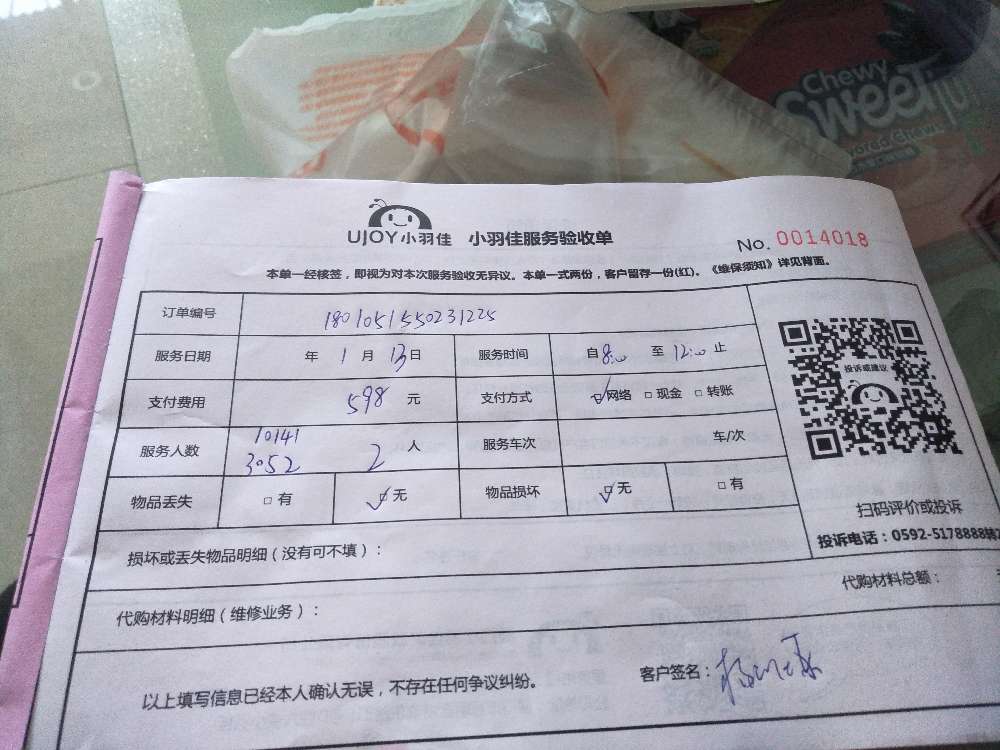 Chewy
Sweet
UJOY小羽佳 小羽佳服务验收单
No. 0014018
本单一经核签，即视为对本次服务验收无异议。本单一式两份，客户留存一份(红)。《维保须知》详见背面。
订单编号 1801051550231225
服务日期 年 1 月 13 日 服务时间 自 8:00 至 12:00 止
支付费用 598 元 支付方式 ☑网络 □现金 □转账
服务人数 10141 3052 2 人 服务车次 车/次
物品丢失 □有 ☑无 物品损坏 ☑无 □有
投诉或建议
扫码评价或投诉
投诉电话：0592-5178888转2
损坏或丢失物品明细（没有可不填）：
代购材料明细（维修业务）： 代购材料总额：
以上填写信息已经本人确认无误，不存在任何争议纠纷。 客户签名：